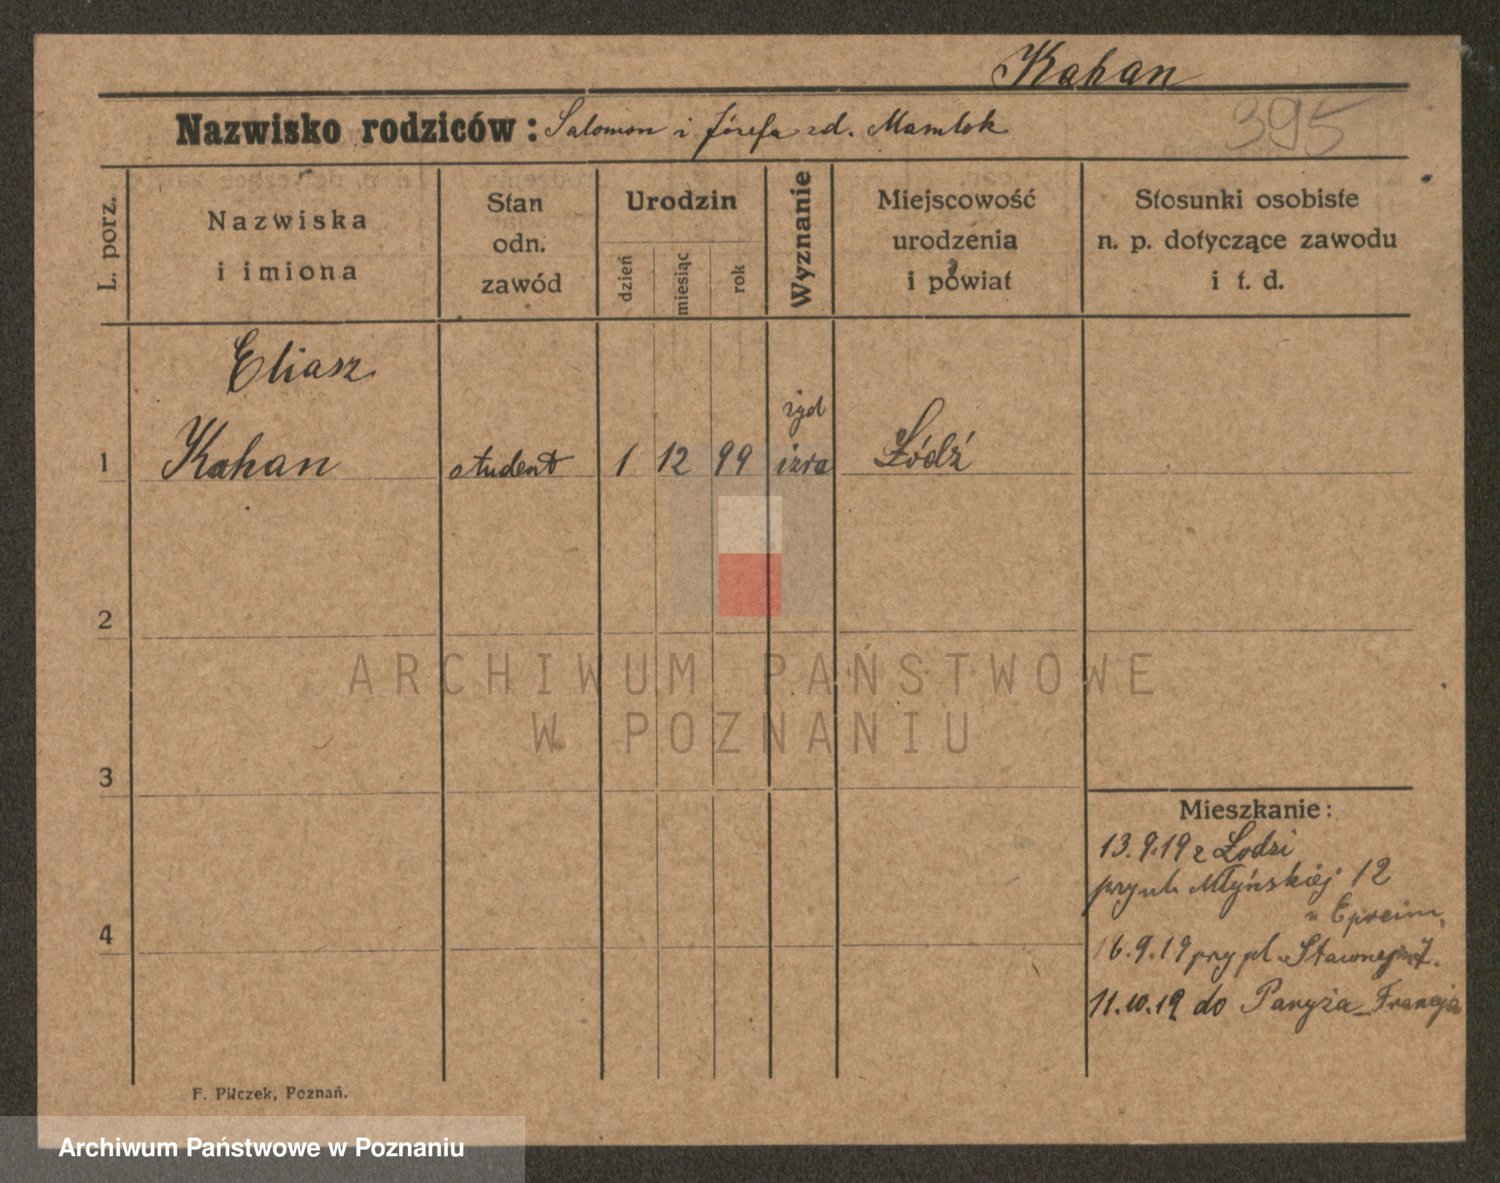 Kahan
Nazwisko rodziców: Salomon i Józefa zd. Mamlok
395
L. porz.
Nazwiska
i imiona
Stan
odn.
zawód
Urodzin
dzień
miesiąc
rok
Wyznanie
Miejscowość
urodzenia
i powiat
Stosunki osobiste
n. p. dotyczące zawodu
i t. d.
Eliasz
żyd
1 Kahan student 1 12 99 izra Łódź
2
ARCHIWUM PAŃSTWOWE
W POZNANIU
3
Mieszkanie:
13.9.19 z Łodzi
przy ul. Młyńskiej 12
4
16.9.19 przy pl.
11.10.19 do Paryża-Francja
F. Pilczek, Poznań.
Archiwum Państwowe w Poznaniu